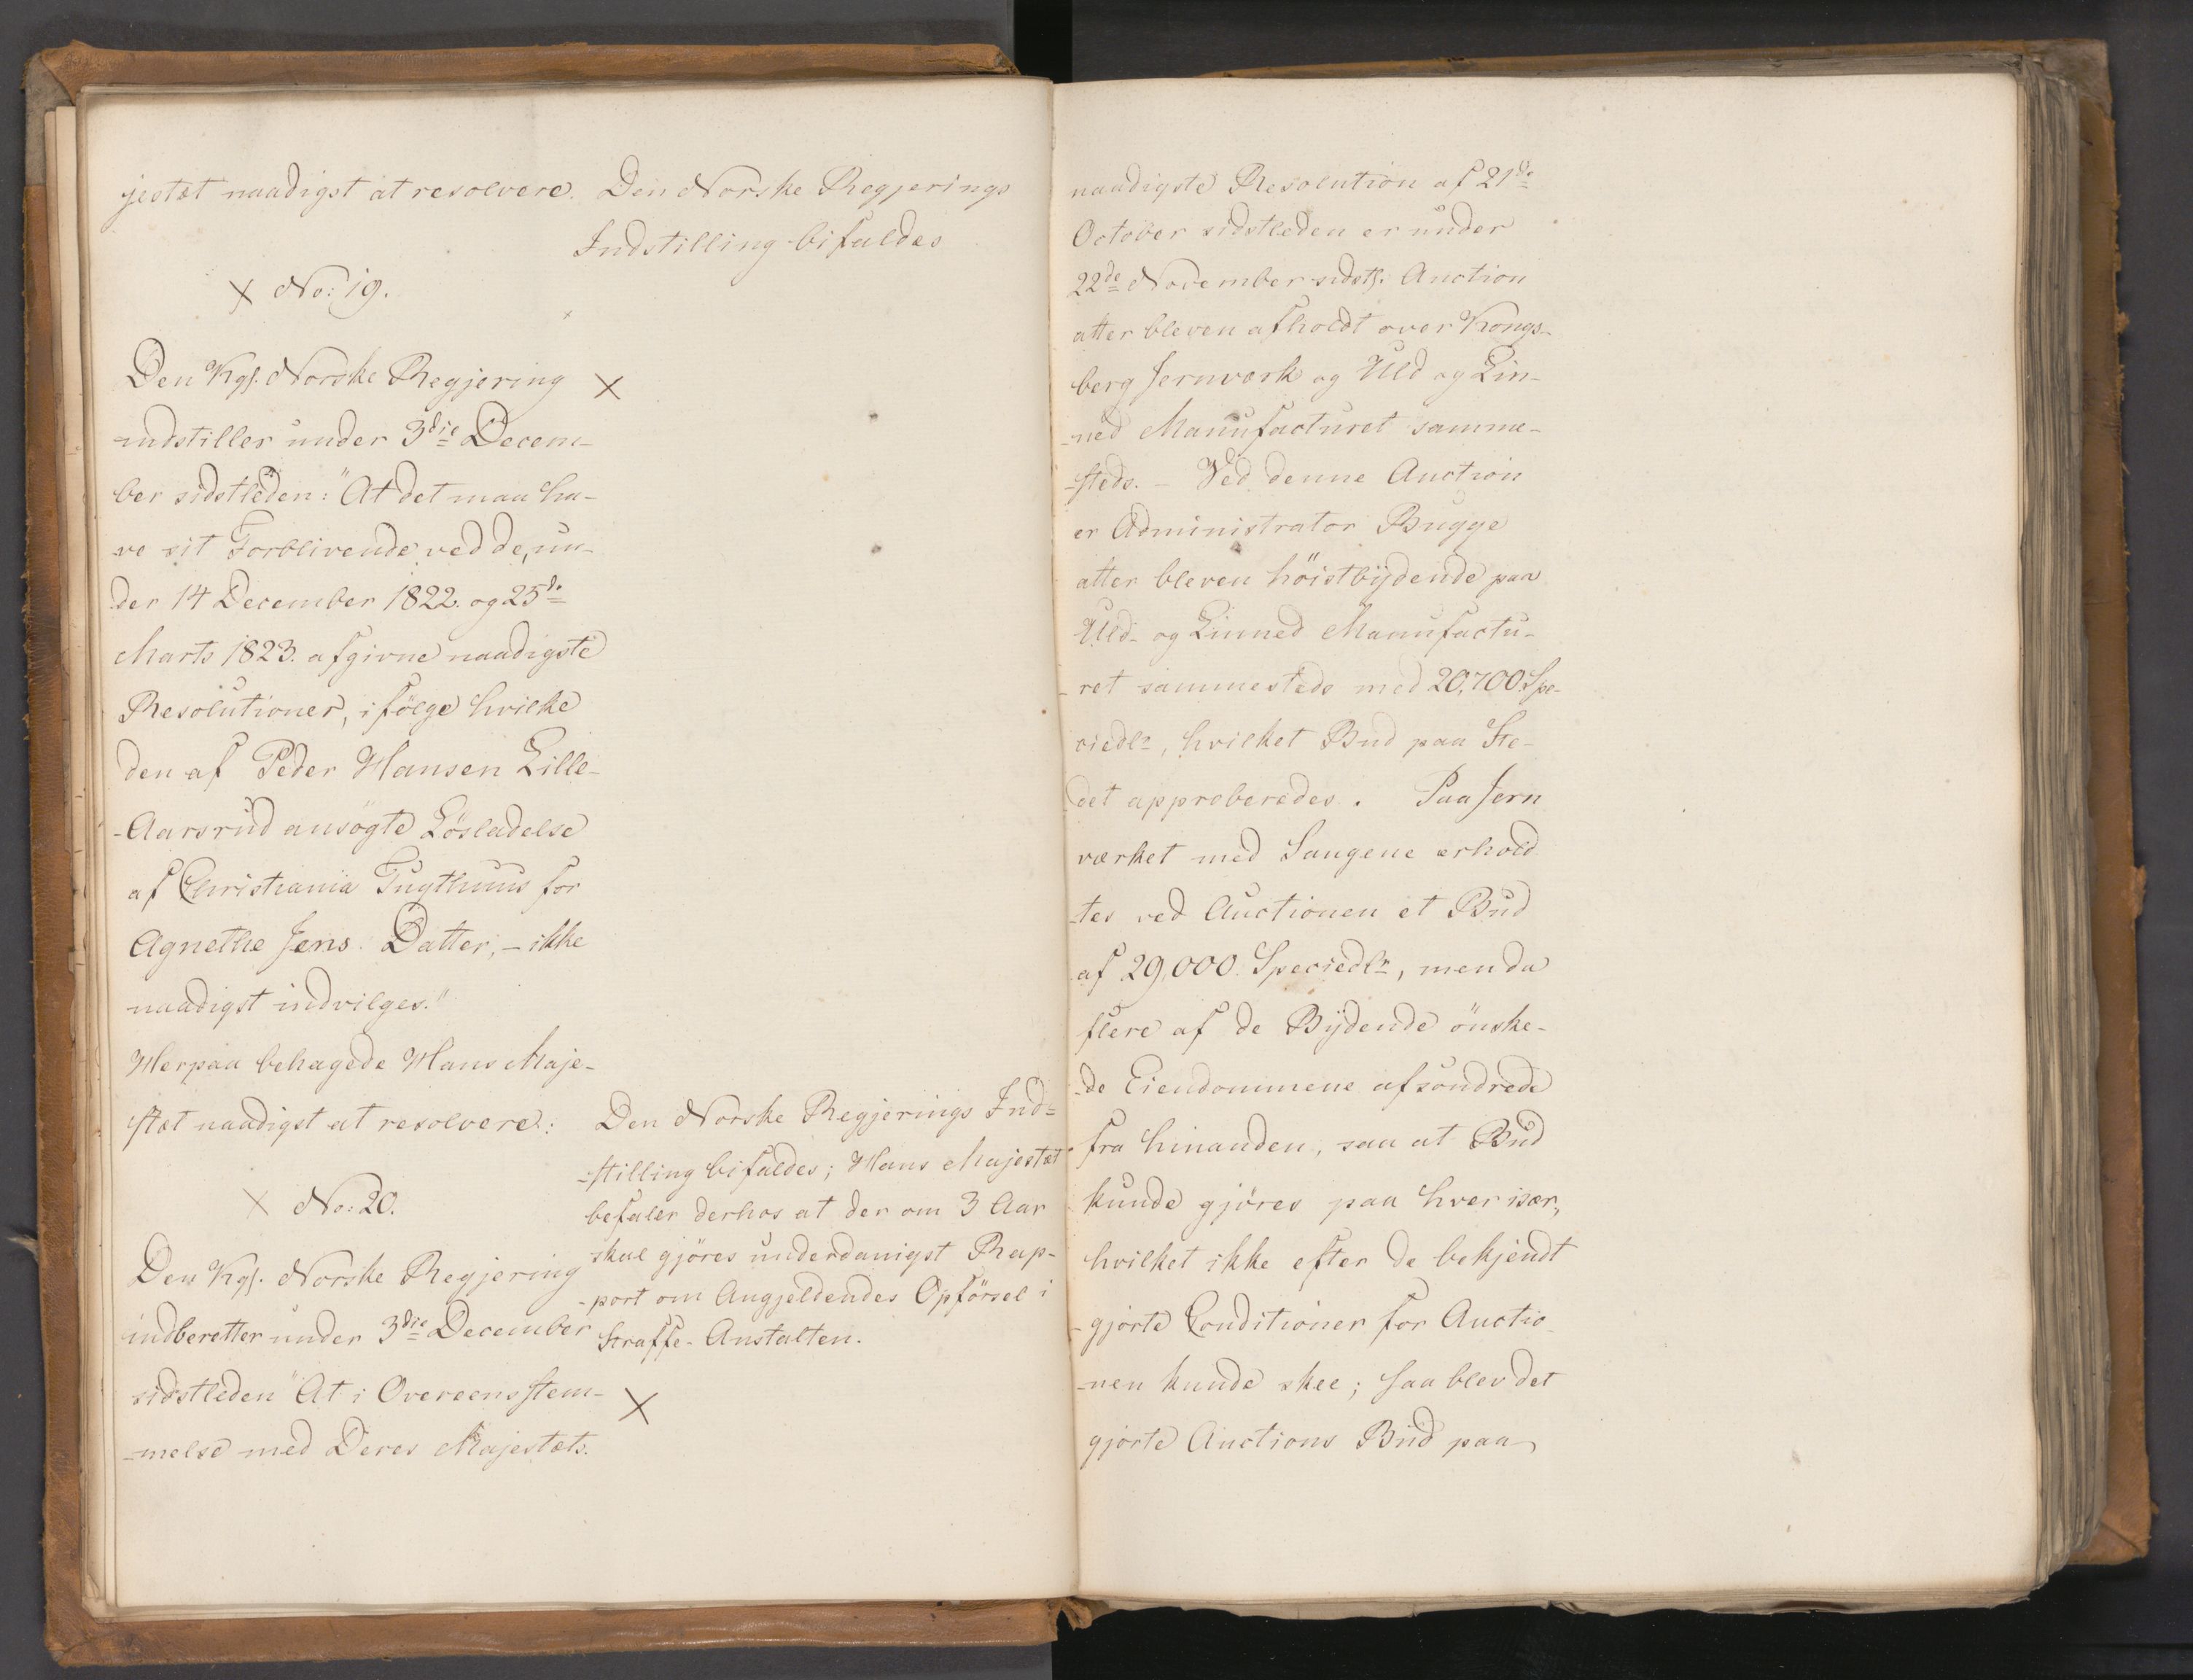 jestæt naadigst at resolvere. Den Norske Regjerings
Indstilling bifaldes
X No: 19.
Den Kgl. Norske Regjering X
indstiller under 3die Decem-
ber sidstleden: "At det maa ha-
ve sit Forblivende ved de, un-
der 14 December 1822. og 25de
Marts 1823. afgivne naadigste
Resolutioner, ifölge hvilke
den af Peder Hansen Lille-
-Aarsrud ansögte Lösladelse
af Christiania Tugthuus for
Agnethe Jens. Datter, - ikke
naadigst indvilges."
Herpaa behagede Hans Maje-
stæt naadigst at resolvere:
Den Norske Regjerings Ind=
-stilling bifaldes; Hans Majestæt
befaler derhos at der om 3 Aar
skal gjöres underdanigst Rap-
-port om Angjeldendes Opförsel i
Straffe-Anstalten.
X No: 20.
Den Kgl. Norske Regjering
indberetter under 3die December
sidstleden "At i Overeensstem- X
-melse med Deres Majestæts.
naadigste Resolution af 21de
October sidstleden er under
22de November sidstl. Auction
atter bleven afholdt over Kongs-
berg Jernværk og Uld og Lin-
-ned Manufacturet samme-
-steds. - Ved denne Auction
er Administrator Bugge
atter bleven höistbÿdende paa
Uld- og Linned Manufactu-
-ret sammesteds med 20,700 Spe-
ciedlr, hvilket Bud paa Ste-
det approberedes. Paa Jern
værket med Saugene erhold
-tes ved Auctionen et Bud
af 29,000. Speciedlr, men da
flere af de Bÿdende önske-
-de Eiendommene afsondrede
fra hinanden, saa at Bud
kunde gjöres paa hver især,
hvilket ikke efter de bekjendt
-gjorte Conditioner for Auctio-
-nen kunde skee; saa blev det
gjorte Auctions Bud paa